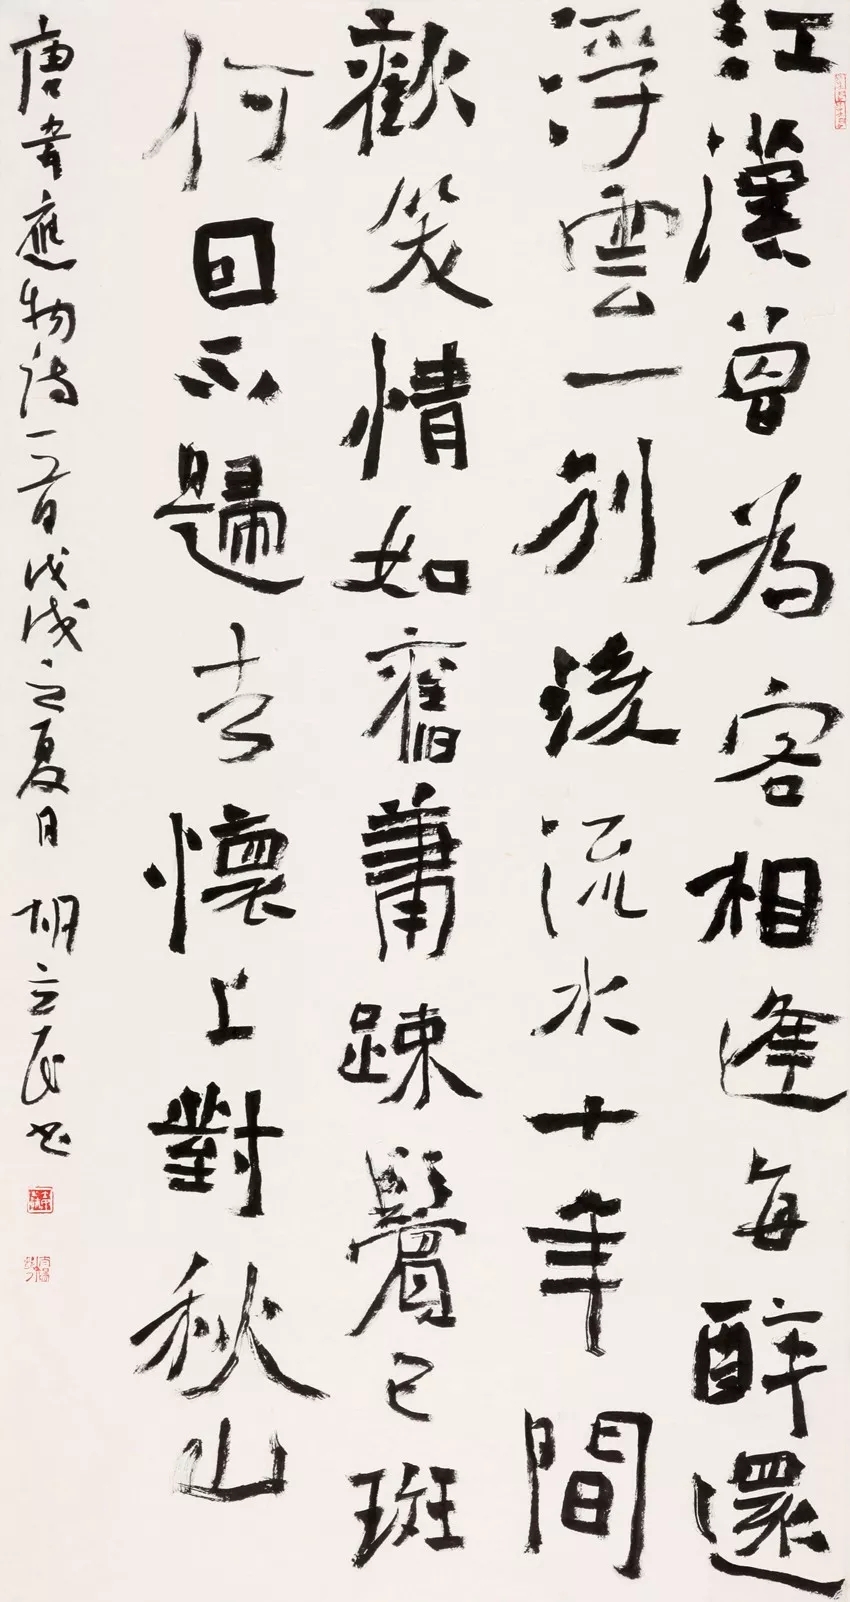 江漢曾為客相逢每醉還
浮雲一別後流水十年間
歡笑情如舊蕭踈鬢已斑
何囙不歸去懷上對秋山
唐韋應物詩一首戊戌立夏日 胡立民书